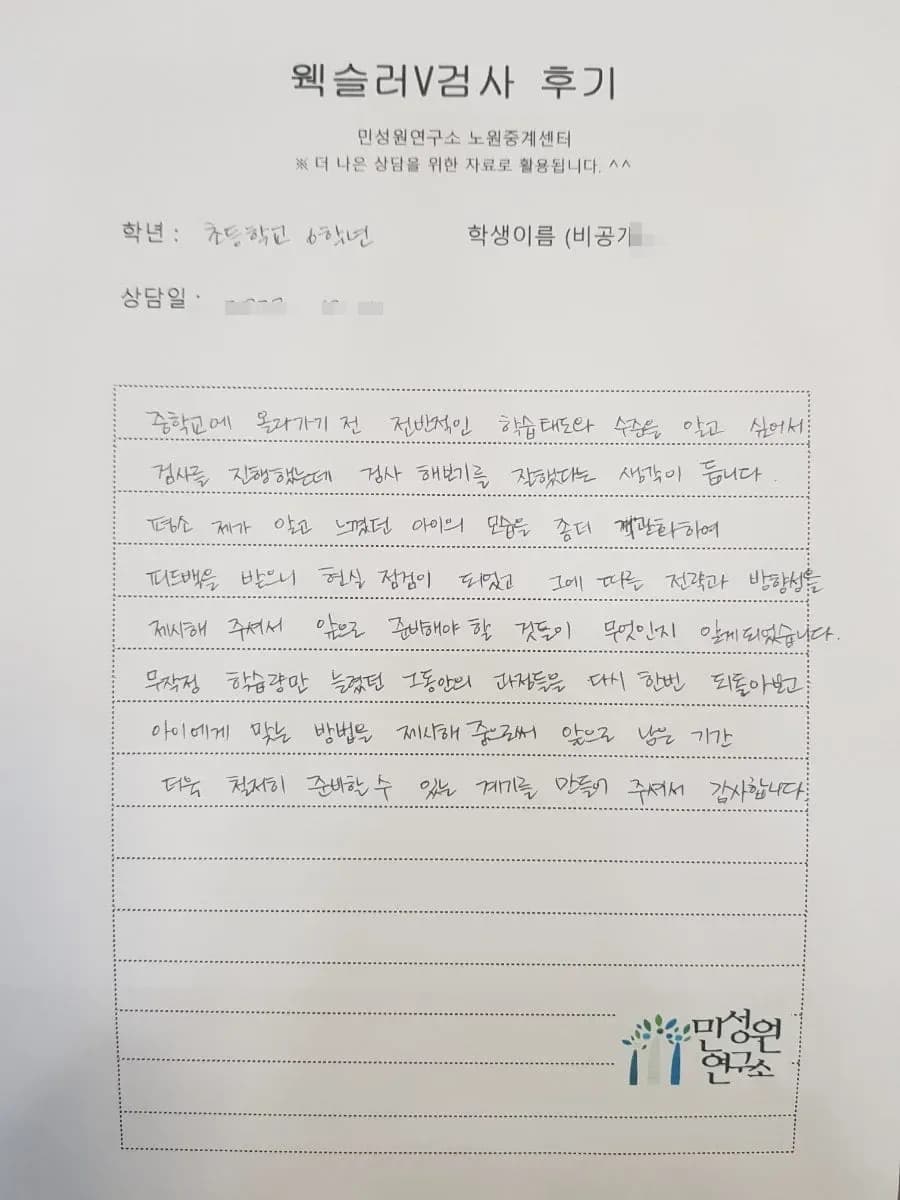 웩슬러V검사 후기
민성원연구소 노원중계센터
※ 더 나은 상담을 위한 자료로 활용됩니다. ^^
학년 : 초등학교 6학년 학생이름 (비공개
상담일 :
중학교에 올라가기 전 전반적인 학습태도와 수준을 알고 싶어서
검사를 진행했는데 검사 해보기를 잘했다는 생각이 듭니다.
평소 제가 알고 느꼈던 아이의 모습을 좀더 객관화하여
피드백을 받으니 현실 점검이 되었고 그에 따른 전략과 방향성을
제시해 주셔서 앞으로 준비해야 할 것들이 무엇인지 알게되었습니다.
무작정 학습량만 늘렸던 그동안의 과정들을 다시 한번 되돌아보고
아이에게 맞는 방법을 제시해 줌으로써 앞으로 남은 기간
더욱 철저히 준비할 수 있는 계기를 만들어 주셔서 감사합니다.
민성원
연구소